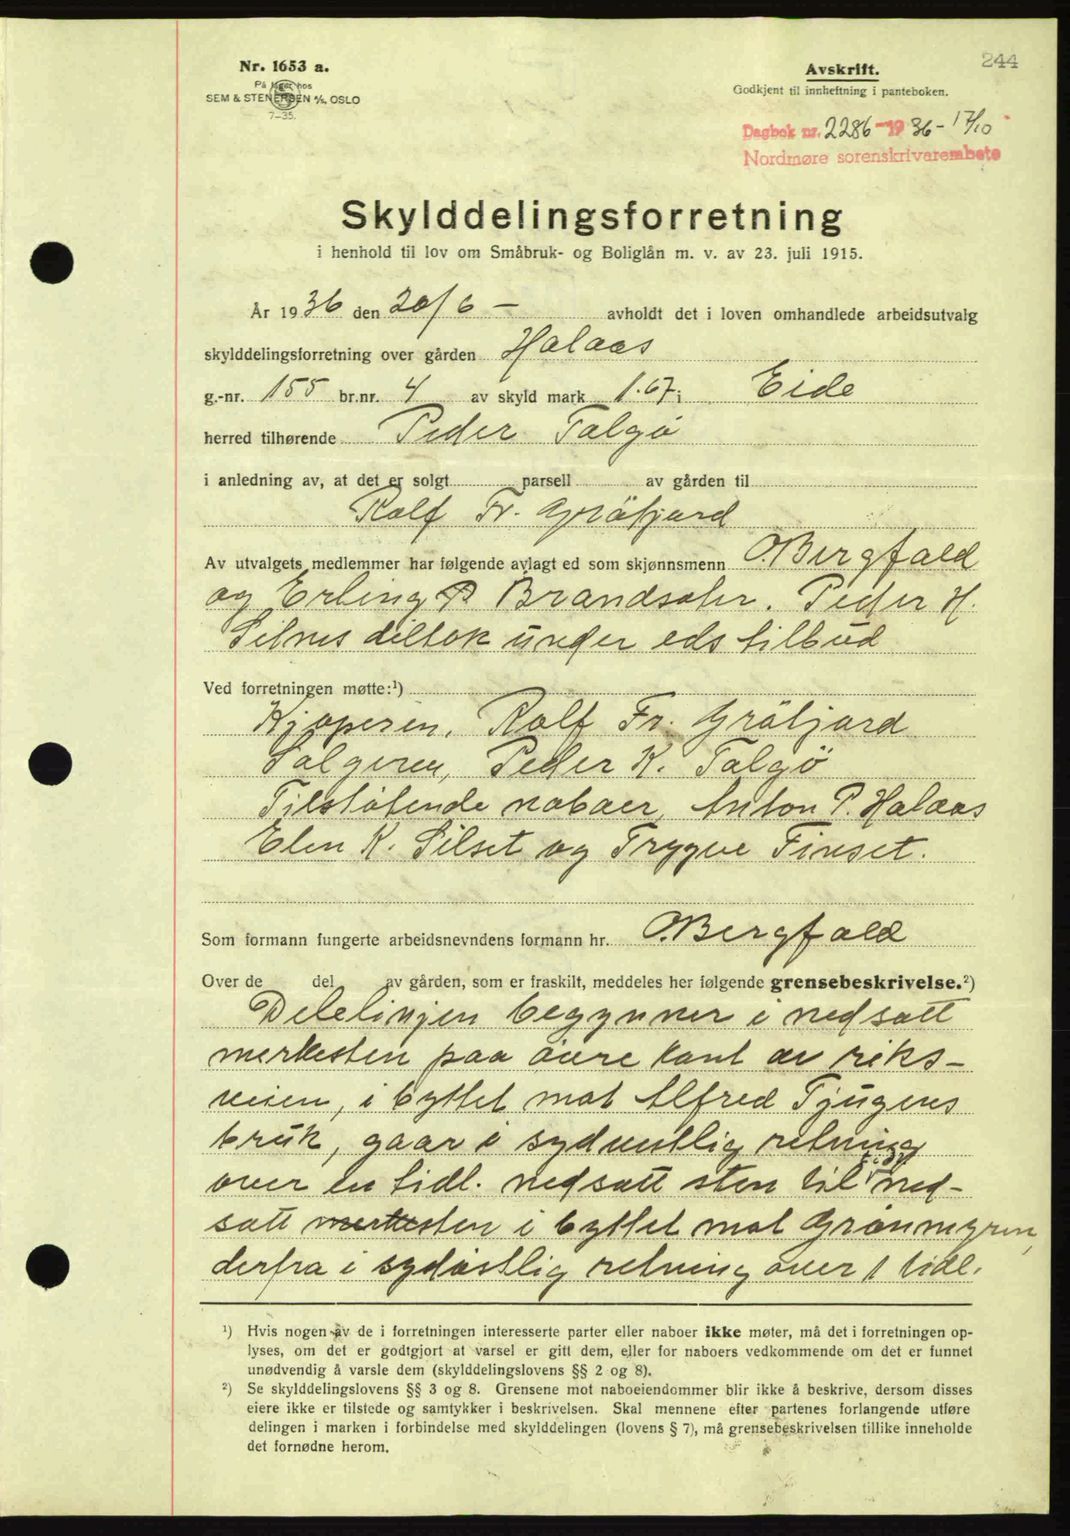 244
Nr. 1653 a.
På lager hos
SEM & STENERSEN A/S, OSLO
7-35.
Avskrift.
Godkjent til innheftning i panteboken.
Dagbok nr. 2286-1936-17/10
Nordmøre sorenskrivarembete
Skylddelingsforretning
i henhold til lov om Småbruk- og Boliglån m. v. av 23. juli 1915.
År 1936 den 20/6 — avholdt det i loven omhandlede arbeidsutvalg
skylddelingsforretning over gården Halaas
g.-nr. 155 br.nr. 4 av skyld mark 1.67 i Eide
herred tilhørende Peder Talgö
i anledning av, at det er solgt parsell av gården til
Rolf Fr. Gräfjard
Av utvalgets medlemmer har følgende avlagt ed som skjønnsmenn O. Bergfald
og Erling Brandsæter. Peder H.
Silnes deltok under eds tilbud
Ved forretningen møtte:¹)
Kjøperen, Rolf Fr. Gräfjard
Sælgeren, Peder K. Talgö
Tilstøtende naboer, Anton P. Halaas
Elen K. Silset og Trygve Finset.
Som formann fungerte arbeidsnevndens formann hr. O. Bergfald
Over de del av gården, som er fraskilt, meddeles her følgende grensebeskrivelse.²)
Delelinjen begynner i nedsatt
merkesten paa øvre kant av riks-
veien, i byttet mot Alfred Tjugens
bruk, gaar i sydvestlig retning
over en tidl. nedsatt sten til tidl. ned-
satt merkesten i byttet mot Grønmyren,
derfra i sydøstlig retning over 1 tidl.
¹) Hvis nogen av de i forretningen interesserte parter eller naboer ikke møter, må det i forretningen op-
lyses, om det er godtgjort at varsel er gitt dem, eller for naboers vedkommende om det er funnet
unødvendig å varsle dem (skylddelingslovens §§ 2 og 8).
²) Se skylddelingslovens §§ 3 og 8. Grensene mot naboeiendommer blir ikke å beskrive, dersom disses
eiere ikke er tilstede og samtykker i beskrivelsen. Skal mennene efter partenes forlangende utføre
delingen i marken i forbindelse med skylddelingen (lovens § 7), må grensebeskrivelsen tillike inneholde
det fornødne herom.